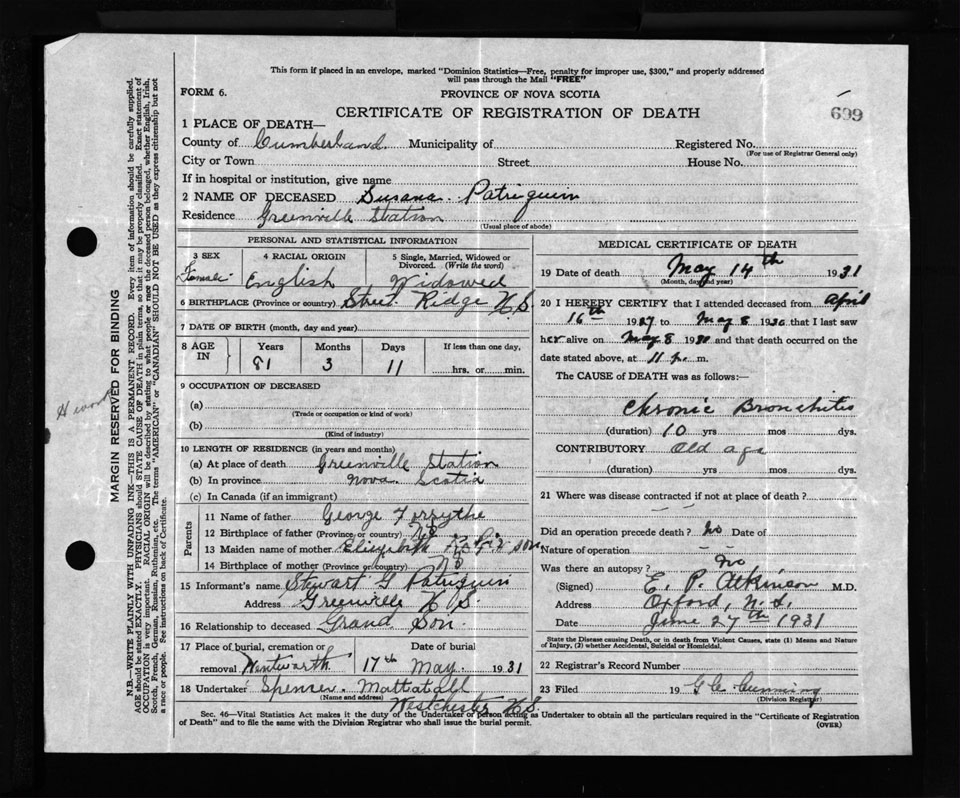 This form if placed in an envelope, marked "Dominion Statistics—Free, penalty for improper use, $300," and properly addressed
will pass through the Mail "FREE"
FORM 6. PROVINCE OF NOVA SCOTIA
CERTIFICATE OF REGISTRATION OF DEATH 699
1 PLACE OF DEATH—
County of Cumberland Municipality of Registered No.
(For use of Registrar General only)
City or Town Street House No.
If in hospital or institution, give name
2 NAME OF DECEASED Susana Patriquin
Residence Greenville Station
(Usual place of abode)
PERSONAL AND STATISTICAL INFORMATION
3 SEX 4 RACIAL ORIGIN 5 Single, Married, Widowed or Divorced. (Write the word)
Female English Widowed
6 BIRTHPLACE (Province or country) Street Ridge N.S.
7 DATE OF BIRTH (month, day and year)
8 AGE IN Years Months Days If less than one day,
81 3 11 hrs. or min.
9 OCCUPATION OF DECEASED
(a)
(Trade or occupation or kind of work)
(b)
(Kind of industry)
10 LENGTH OF RESIDENCE (in years and months)
(a) At place of death Greenville Station
(b) In province Nova Scotia
(c) In Canada (if an immigrant)
Parents
11 Name of father George Forsythe
12 Birthplace of father (Province or country) N.S.
13 Maiden name of mother Elizabeth
14 Birthplace of mother (Province or country) N.S.
15 Informant's name Stewart G. Patriquin
Address Greenville N.S.
16 Relationship to deceased Grand Son.
17 Place of burial, cremation or removal Wentworth Date of burial 17th May 1931
18 Undertaker Spencer Mattatall
(Name and address) Westchester N.S.
MEDICAL CERTIFICATE OF DEATH
19 Date of death May 14th 1931
(Month, day and year)
20 I HEREBY CERTIFY that I attended deceased from April
16th 1927 to May 8 1930 that I last saw
her alive on May 8 1930 and that death occurred on the
date stated above, at 11 p. m.
The CAUSE OF DEATH was as follows:
Chronic Bronchitis
(duration) 10 yrs mos. dys.
CONTRIBUTORY Old age
(duration) yrs mos. dys.
21 Where was disease contracted if not at place of death?
Did an operation precede death? No Date of
Nature of operation
Was there an autopsy? No
(Signed) E. P. Atkinson M.D.
Address Oxford, N.S.
Date June 27th 1931
State the Disease causing Death, or in death from Violent Causes, state (1) Means and Nature
of Injury, (2) whether Accidental, Suicidal or Homicidal.
22 Registrar's Record Number
23 Filed 19
(Division Registrar)
Sec. 46—Vital Statistics Act makes it the duty of the Undertaker or person acting as Undertaker to obtain all the particulars required in the "Certificate of Registration
of Death" and to file the same with the Division Registrar who shall issue the burial permit. (OVER)
MARGIN RESERVED FOR BINDING
N.B.—WRITE PLAINLY WITH UNFADING INK—THIS IS A PERMANENT RECORD. Every item of information should be carefully supplied.
AGE should be stated EXACTLY. PHYSICIANS should STATE CAUSE OF DEATH in plain terms, so that it may be properly classified. Exact statement of
OCCUPATION is very important. RACIAL ORIGIN will be described by stating to what people or race the deceased person belonged, whether English, Irish,
Scotch, French, German, Russian, Ruthenian, etc. The terms "AMERICAN" or "CANADIAN" SHOULD NOT BE USED as they express citizenship but not
a race or people. See instructions on back of Certificate.